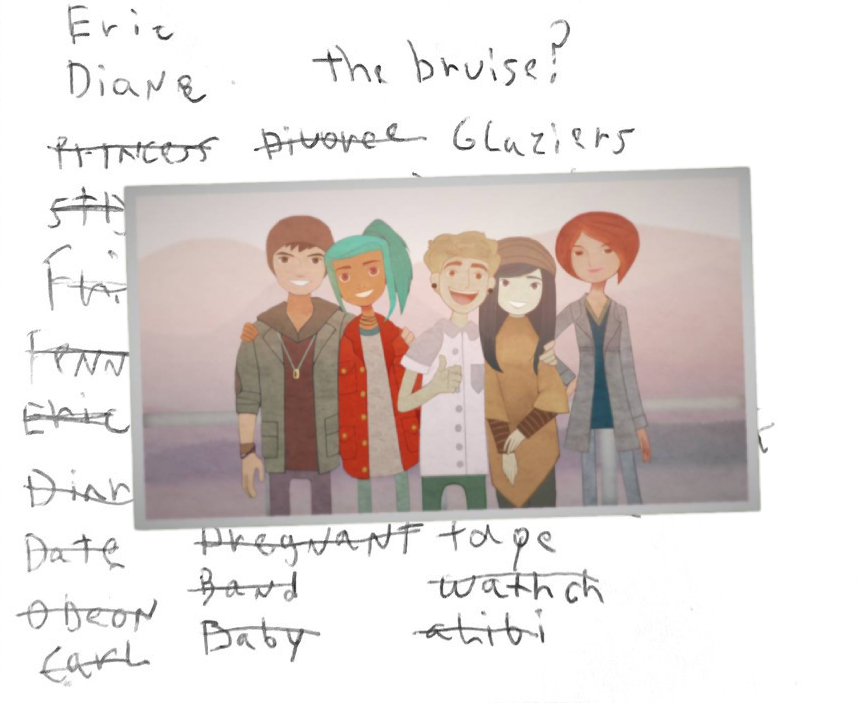 Eric
Diane
the bruise?
Princess Divorce Glaziers
Eric
Date Pregnant tape
Band wathch
Odeon
Baby alibi